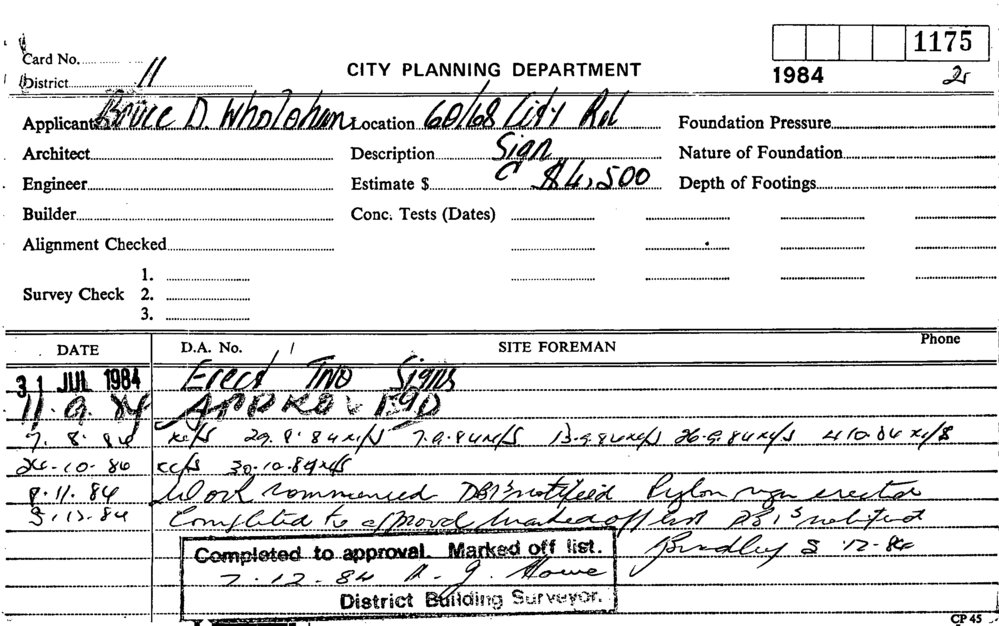 1175
Card No.
CITY PLANNING DEPARTMENT
1984
2r
District 11
Applicant Bruce D. Wholohan Location 60/68 City Rd Foundation Pressure
Architect Description Sign Nature of Foundation
Engineer Estimate $ $4,500 Depth of Footings
Builder Conc. Tests (Dates)
Alignment Checked
1.
Survey Check 2.
3.
DATE D.A. No. SITE FOREMAN Phone
31 JUL 1984 Erect Two Signs
11.9.84 APPROVED
7.8.84 29.8.84 7.9.84 13.9.84 26.9.84 4.10.84
24-10-84 30-10-84
8.11.84 Work commenced DBI's notified Pylon sign erected
3.12.84 Completed to approval marked off list DBI's notified
Bradley 3.12.84
Completed to approval. Marked off list.
7.12.84 R. J. Howe
District Building Surveyor.
CP 45